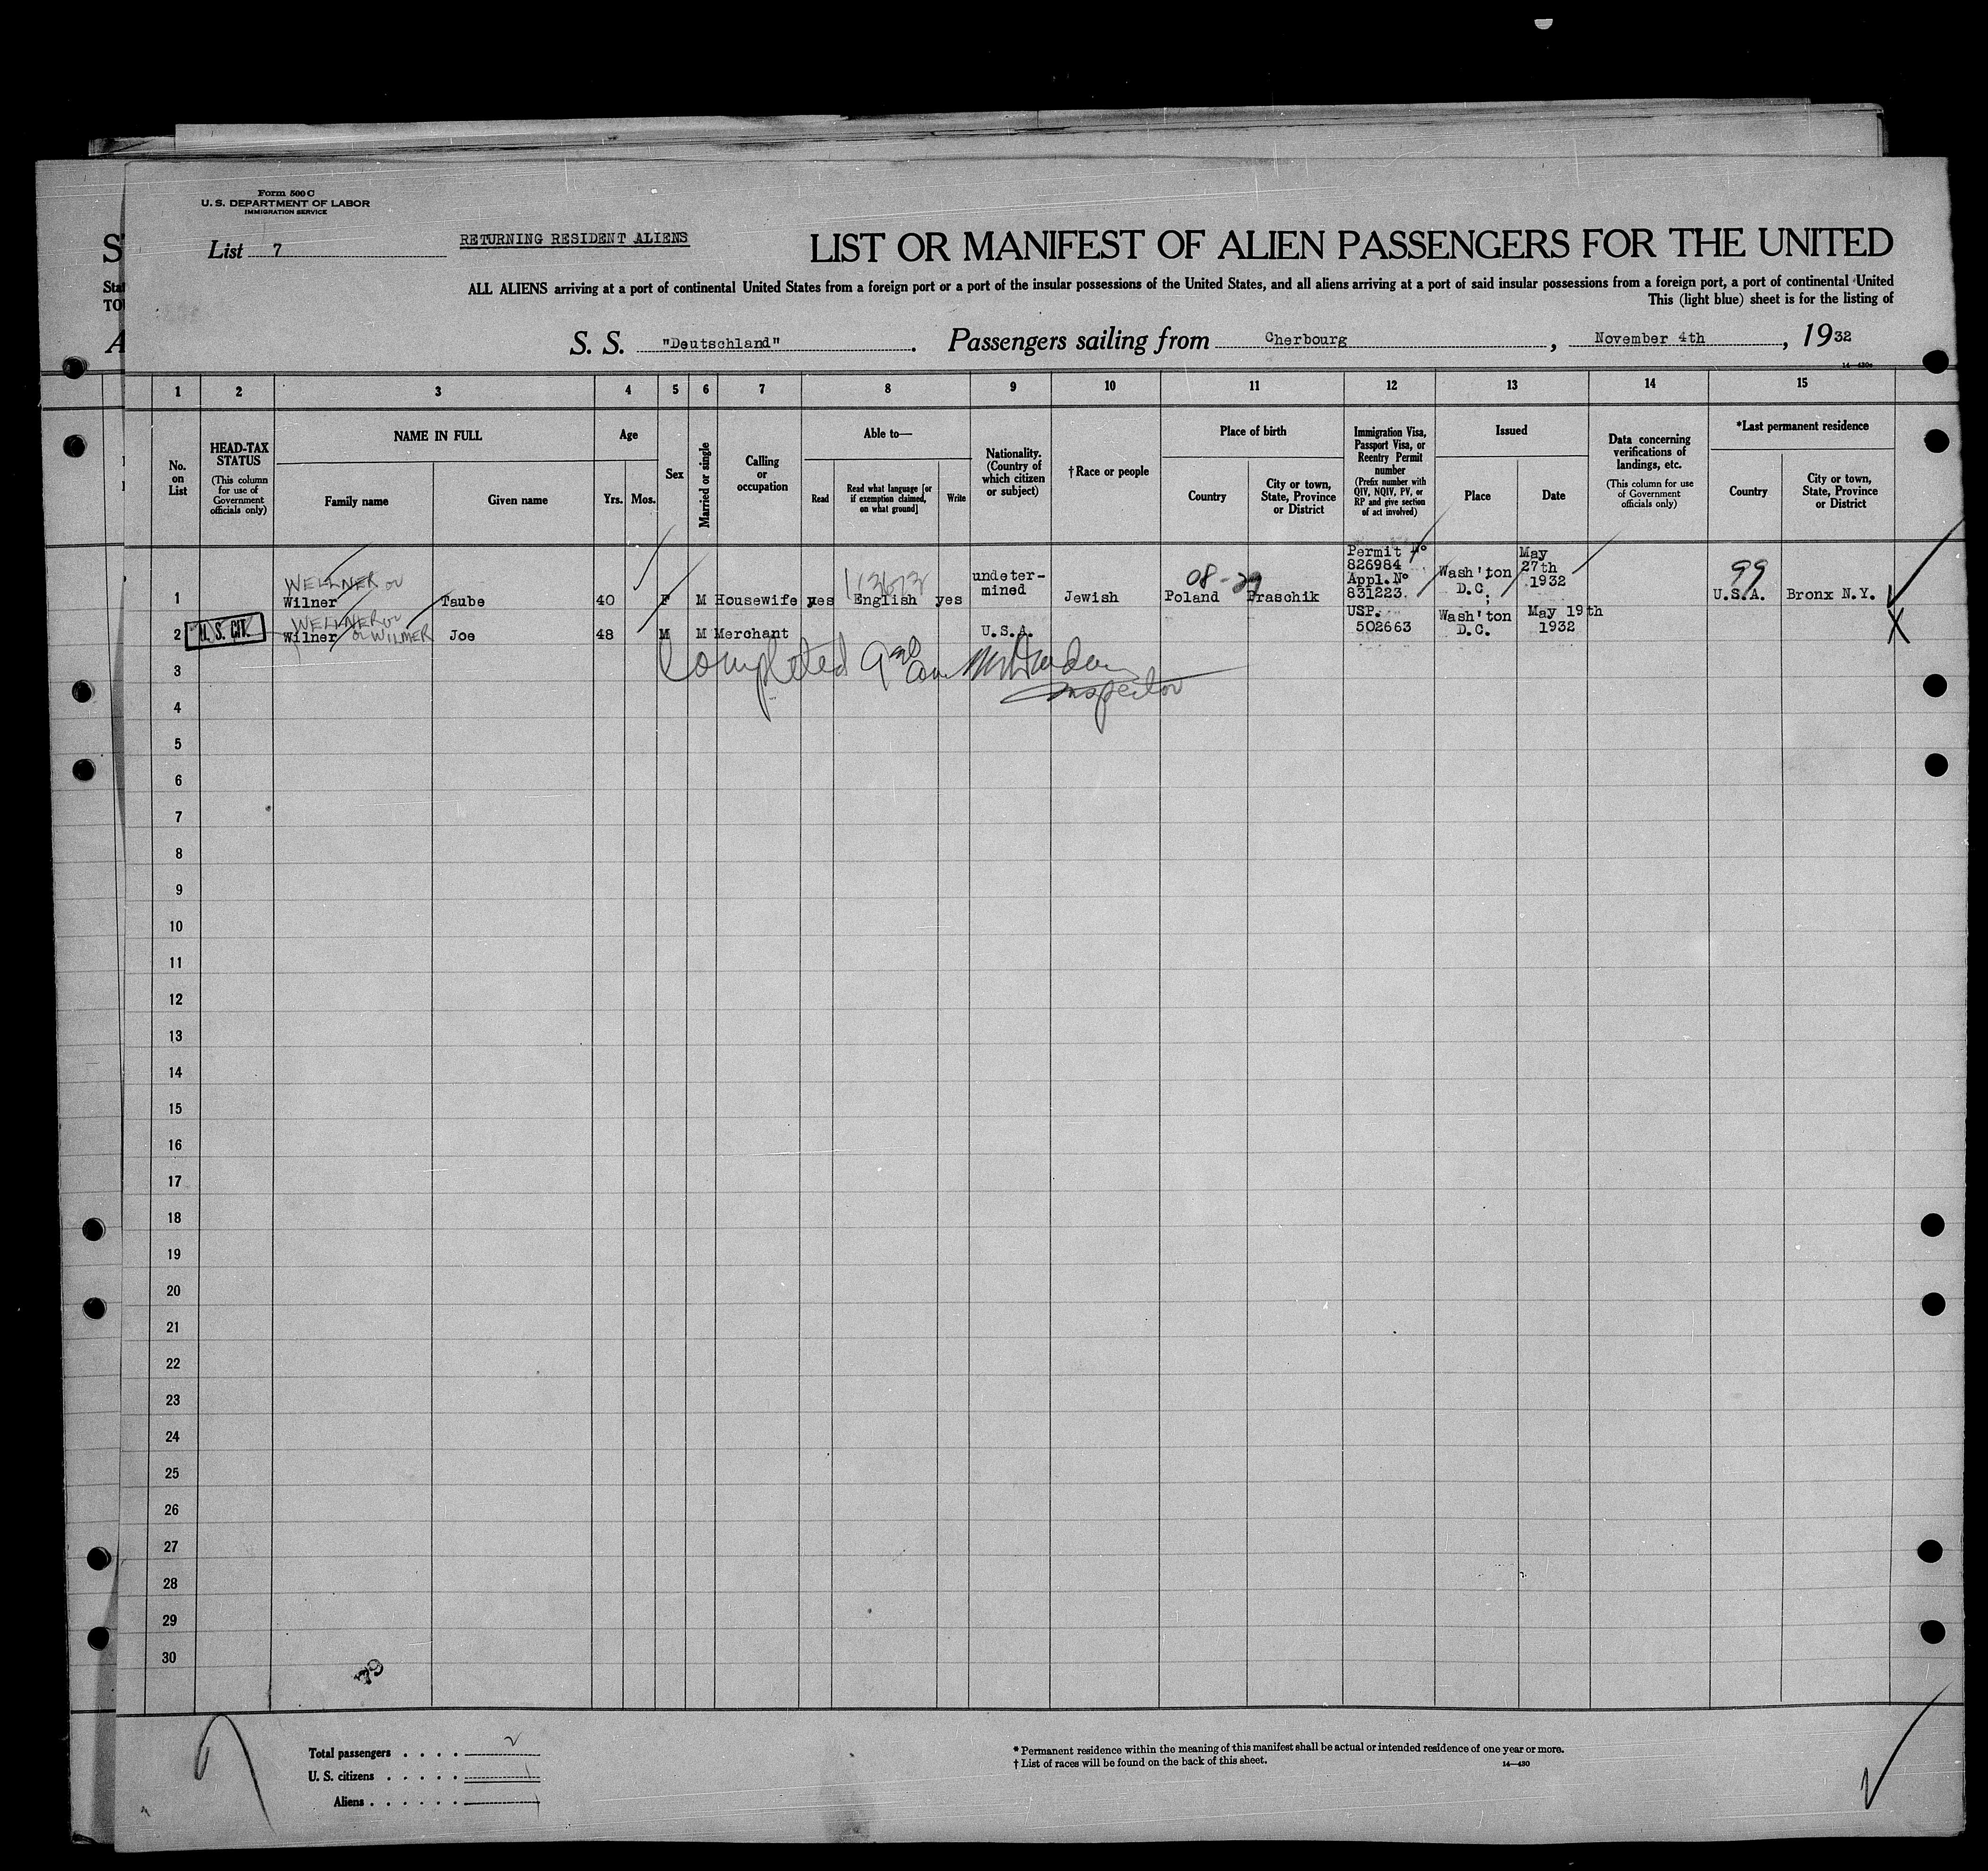 Form 500 C
U. S. DEPARTMENT OF LABOR
IMMIGRATION SERVICE
List 7
RETURNING RESIDENT ALIENS
LIST OR MANIFEST OF ALIEN PASSENGERS FOR THE UNITED
ALL ALIENS arriving at a port of continental United States from a foreign port or a port of the insular possessions of the United States, and all aliens arriving at a port of said insular possessions from a foreign port, a port of continental United
This (light blue) sheet is for the listing of
S. S. "Deutschland". Passengers sailing from Cherbourg, November 4th, 1932
14—430a
1 2 3 4 5 6 7 8 9 10 11 12 13 14 15
No. on List
HEAD-TAX STATUS
(This column for use of Government officials only)
NAME IN FULL
Family name
Given name
Age
Yrs. Mos.
Sex
Married or single
Calling or occupation
Able to—
Read
Read what language [or if exemption claimed, on what ground]
Write
Nationality. (Country of which citizen or subject)
†Race or people
Place of birth
Country
City or town, State, Province or District
Immigration Visa, Passport Visa, or Reentry Permit number
(Prefix number with QIV, NQIV, PV, or RP and give section of act involved)
Issued
Place
Date
Data concerning verifications of landings, etc.
(This column for use of Government officials only)
*Last permanent residence
Country
City or town, State, Province or District
WELLNER or
1 Wilner Taube 40 F M Housewife yes English yes undeter-mined Jewish Poland Praschik Permit No 826984 Appl. No 831223. Wash'ton D.C. May 27th 1932 U.S.A. Bronx N.Y.
08-29
99
WELLNER or
2 U. S. CIT. Wilner or WILMER Joe 48 M M Merchant U.S.A. USP. 502663 Wash'ton D.C. May 19th 1932
X
Completed
Inspector
3
4
5
6
7
8
9
10
11
12
13
14
15
16
17
18
19
20
21
22
23
24
25
26
27
28
29
30
Total passengers . . . . 2
U. S. citizens . . . . . 1
Aliens . . . . . . 1
* Permanent residence within the meaning of this manifest shall be actual or intended residence of one year or more.
† List of races will be found on the back of this sheet.
14—430